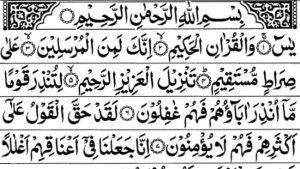 بِسْمِ اللّٰهِ الرَّحْمٰنِ الرَّحِيْمِ
يٰسٓ ۝١ وَالْقُرْاٰنِ الْحَكِيْمِ ۝٢ اِنَّكَ لَمِنَ الْمُرْسَلِيْنَ ۝٣ عَلٰى
صِرَاطٍ مُّسْتَقِيْمٍ ۝٤ تَنْزِيْلَ الْعَزِيْزِ الرَّحِيْمِ ۝٥ لِتُنْذِرَ قَوْمًا
مَّاۤ اُنْذِرَ اٰبَآؤُهُمْ فَهُمْ غٰفِلُوْنَ ۝٦ لَقَدْ حَقَّ الْقَوْلُ عَلٰٓى
اَكْثَرِهِمْ فَهُمْ لَا يُؤْمِنُوْنَ ۝٧ اِنَّا جَعَلْنَا فِيْۤ اَعْنَاقِهِمْ اَغْلٰلًا